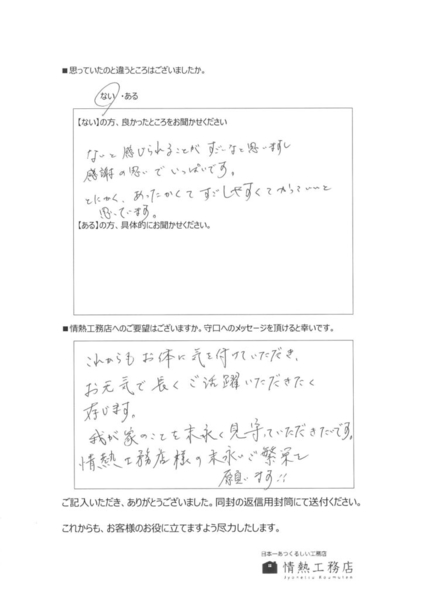 ■思っていたのと違うところはございましたか。
ない・ある
【ない】の方、良かったところをお聞かせください
ないと感じられることがすごいなと思いますし
感謝の思いでいっぱいです。
とにかく、あったかくてすごしやすくてかっこいいと
思っています。
【ある】の方、具体的にお聞かせください。
■情熱工務店へのご要望はございますか。守口へのメッセージを頂けると幸いです。
これからもお体に気を付けていただき、
お元気で長くご活躍いただきたく
存じます。
我が家のことを末永く見守っていただきたいです。
情熱工務店様の末永いご繁栄を
願います!!
ご記入いただき、ありがとうございました。同封の返信用封筒にて送付ください。
これからも、お客様のお役に立てますよう尽力したします。
日本一あつくるしい工務店
情熱工務店
Jyonetsu Koumuten